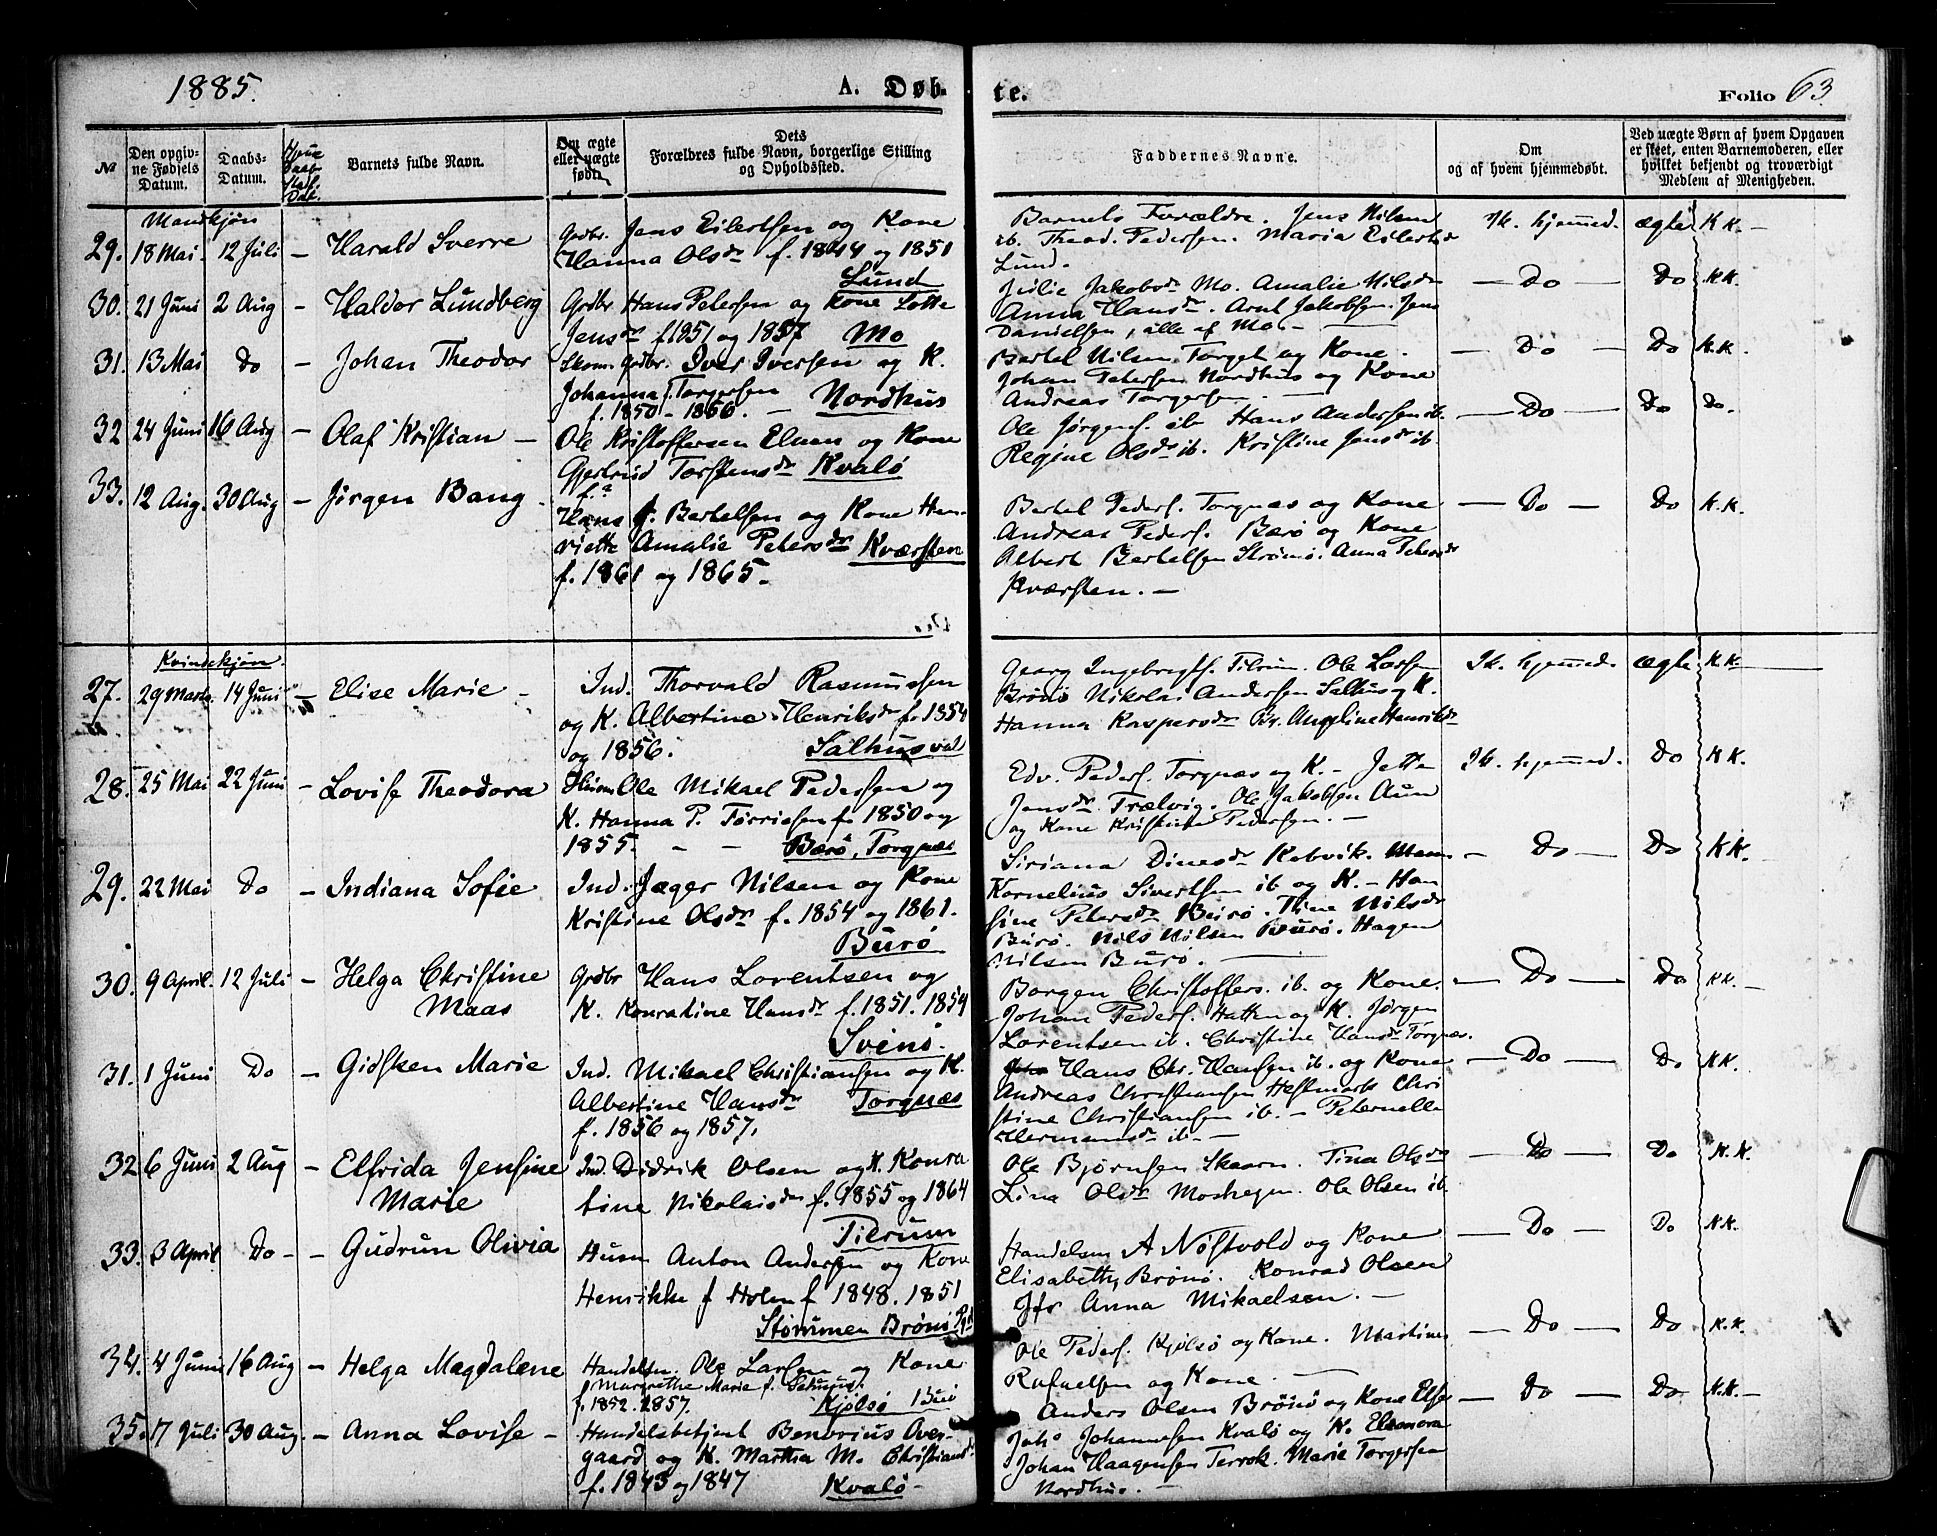 1885.
A. Døb-
te.
Folio 63.
№
Den opgiv-
ne Fødsels
Datum.
Daabs-
Datum.
Barnets fulde Navn.
Om ægte
eller uægte
født.
Dets
Forældres fulde Navn, borgerlige Stilling
og Opholdsted.
Faddernes Navne.
Om
og af hvem hjemmedøbt.
Ved uægte Børn af hvem Opgaven
er skeet, enten Barnemoderen, eller
hvilket bekjendt og troværdigt
Medlem af Menigheden.
Mandkjøn
29. 18 Mai. 12 Juli – Harald Sverre
Grdbr. Jens Eilertsen og Kone
Hanna Olsdr f. 1844 og 1851
Lund
Barnets Forældre. Jens Nilsen
ib. Theod. Pedersen. Maria Eilertsdr
Lund.
Ik. hjemmed. ægte KK. –
30. 21 Juni 2 Aug – Haldor Lundberg
Grdbr Hans Petersen og Kone Lotte
Jensdr f. 1851 og 1857 Mo
Julie Jakobsdr Mo. Amalie Nilsdr
Anna Hansdr. Arnt Jakobsen. Jens
Danielsen, alle af Mo. –
– Do – Do KK.
31. 13 Mai Do – Johan Theodor
Skom. Grdbr. Iver Iversen og K.
Johanna Torgersen
f. 1850 – 1856. – Nordhus
Bertel Nilsen Torget og Kone.
Johan Petersen Nordhus og Kone
Andreas Torgersen. –
– Do – Do K.K.
32 24 Juni 16 Aug – Olaf Kristian –
Ole Kristoffersen Elven og Kone
Gjertrud Torstensdr Kvalø
f. ?
Ole Jørgens. ib Hans Andersen ib.
Regine Olsdr ib. Kristine Jensdr ib.
– Do – Do Do.
33. 12 Aug. 30 Aug – Jørgen Bang
Hans J. Bertelsen og Kone Hen-
riette Amalie Petersdr Kværsten
f. 1861 og 1865.
Bertel Peders. Torgnæs og Kone
Andreas Peders. Bærø og Kone
Albert Bertelsen Strømø. Anna Petersdr
Kværsten. –
– Do – Do K.K.
Kvindekjøn.
27. 29 Marts. 14 Juni – Elise Marie –
Ind. Thorvald Rasmussen
og K. Albertine Henriksdr f. 1854
og 1856. Salhusval
Georg Ingebrigts. Tilrum. Ole Larsen
Brønø Nikolai Andersen Salhus og K.
Hanna Kaspersdr Br. Angeline Henriksdr
Ik. hjemmed. ægte K.K.
28. 25 Mai 22 Juni – Lovise Theodora
Ole Mikael Pedersen og
K. Hanna P. Torrissen f. 1850 og
1855. – – Bærø, Torgnæs
Edv. Peders. Torgnæs og K. – Jette
Jensdr. Trælvig. Ole Jakobsen Aun
og Kone Kristine Pedersen. –
Ik. hjemmed. Do KK.
29. 22 Mai Do – Indiana Sofie
Ind. Jæger Nilsen og Kone
Kristine Olsdr f. 1854 og 1861.
Burø
Siriana Dinesdr Rebvik.
Kornelius Sivertsen ib og K. – Han
sine Petersdr Burø. Thine Nilsdr
Burø. Nils Nilsen Burø. Hagen
Nilsen Burø. –
– Do – Do KK.
30. 9 April. 12 Juli – Helga Christine
Maas
Grdbr Hans Lorentsen og
K. Konradine Hansdr f. 1851. 1854
Svinø.
Borgen Christoffers. ib. og Kone.
Johan Peders. Hatten og K. Jørgen
Lorentsen ib. Christine Hansdr Torgnæs.
– Do – Do KK. –
31. 1 Juni Do – Gidsken Marie
Ind. Mikael Christiansen og K.
Albertine Hansdr Torgnæs
f. 1856 og 1857.
Hans Chr. Hansen ib. og Kone
Andreas Christiansen Hestmark Chri
stine Christiansen ib. – Peternelle
Hermansdr ib. –
– Do – Do KK.
32 6 Juni 2 Aug – Elfrida Jensine
Marie
Ind. Didrik Olsen og K. Konra
tine Nikolaisdr f. 1855 og 1864
Tilrum
Ole Bjørnsen Skaarn. Tina Olsdr
Lina Olsdr Moshagen. Ole Olsen ib.
– Do – Do K.K.
33. 3 April Do – – Gudrun Olivia
Husm Anton Andersen og Kone
Henrikke f Holm f 1848. 1851
Strømmen Brønø Pgd
Handelsm A Nøstvold og Kone
Elisabeth, Brønø. Konrad Olsen
Jfr Anna Mikaelsen. –
– Do – Do K.K.
34. 4 Juni 16 Aug – Helga Magdalene
Handelsm. Ole Larsen og Kone
Margrethe Marie f.
f. 1852. 1857. Kjølsø
Ole Peders. Kjølsø og Kone. Martinus
Rafaelsen og Kone. –
– Do – Do K.K.
35. 17 Juli 30 Aug. – Anna Lovise –
Handelsbetjent Benorius Over-
gaard og K. Martha M. Christiansdr
f. 1843 og 1847 Kvalø –
Anders Olsen Brønø og Kone Else
Johs Johannesen Kvalø og K. Elenora
Johan Haagensen Terrok. Marie Torgersen
Nordhus. –
– Do – Do K.K. –